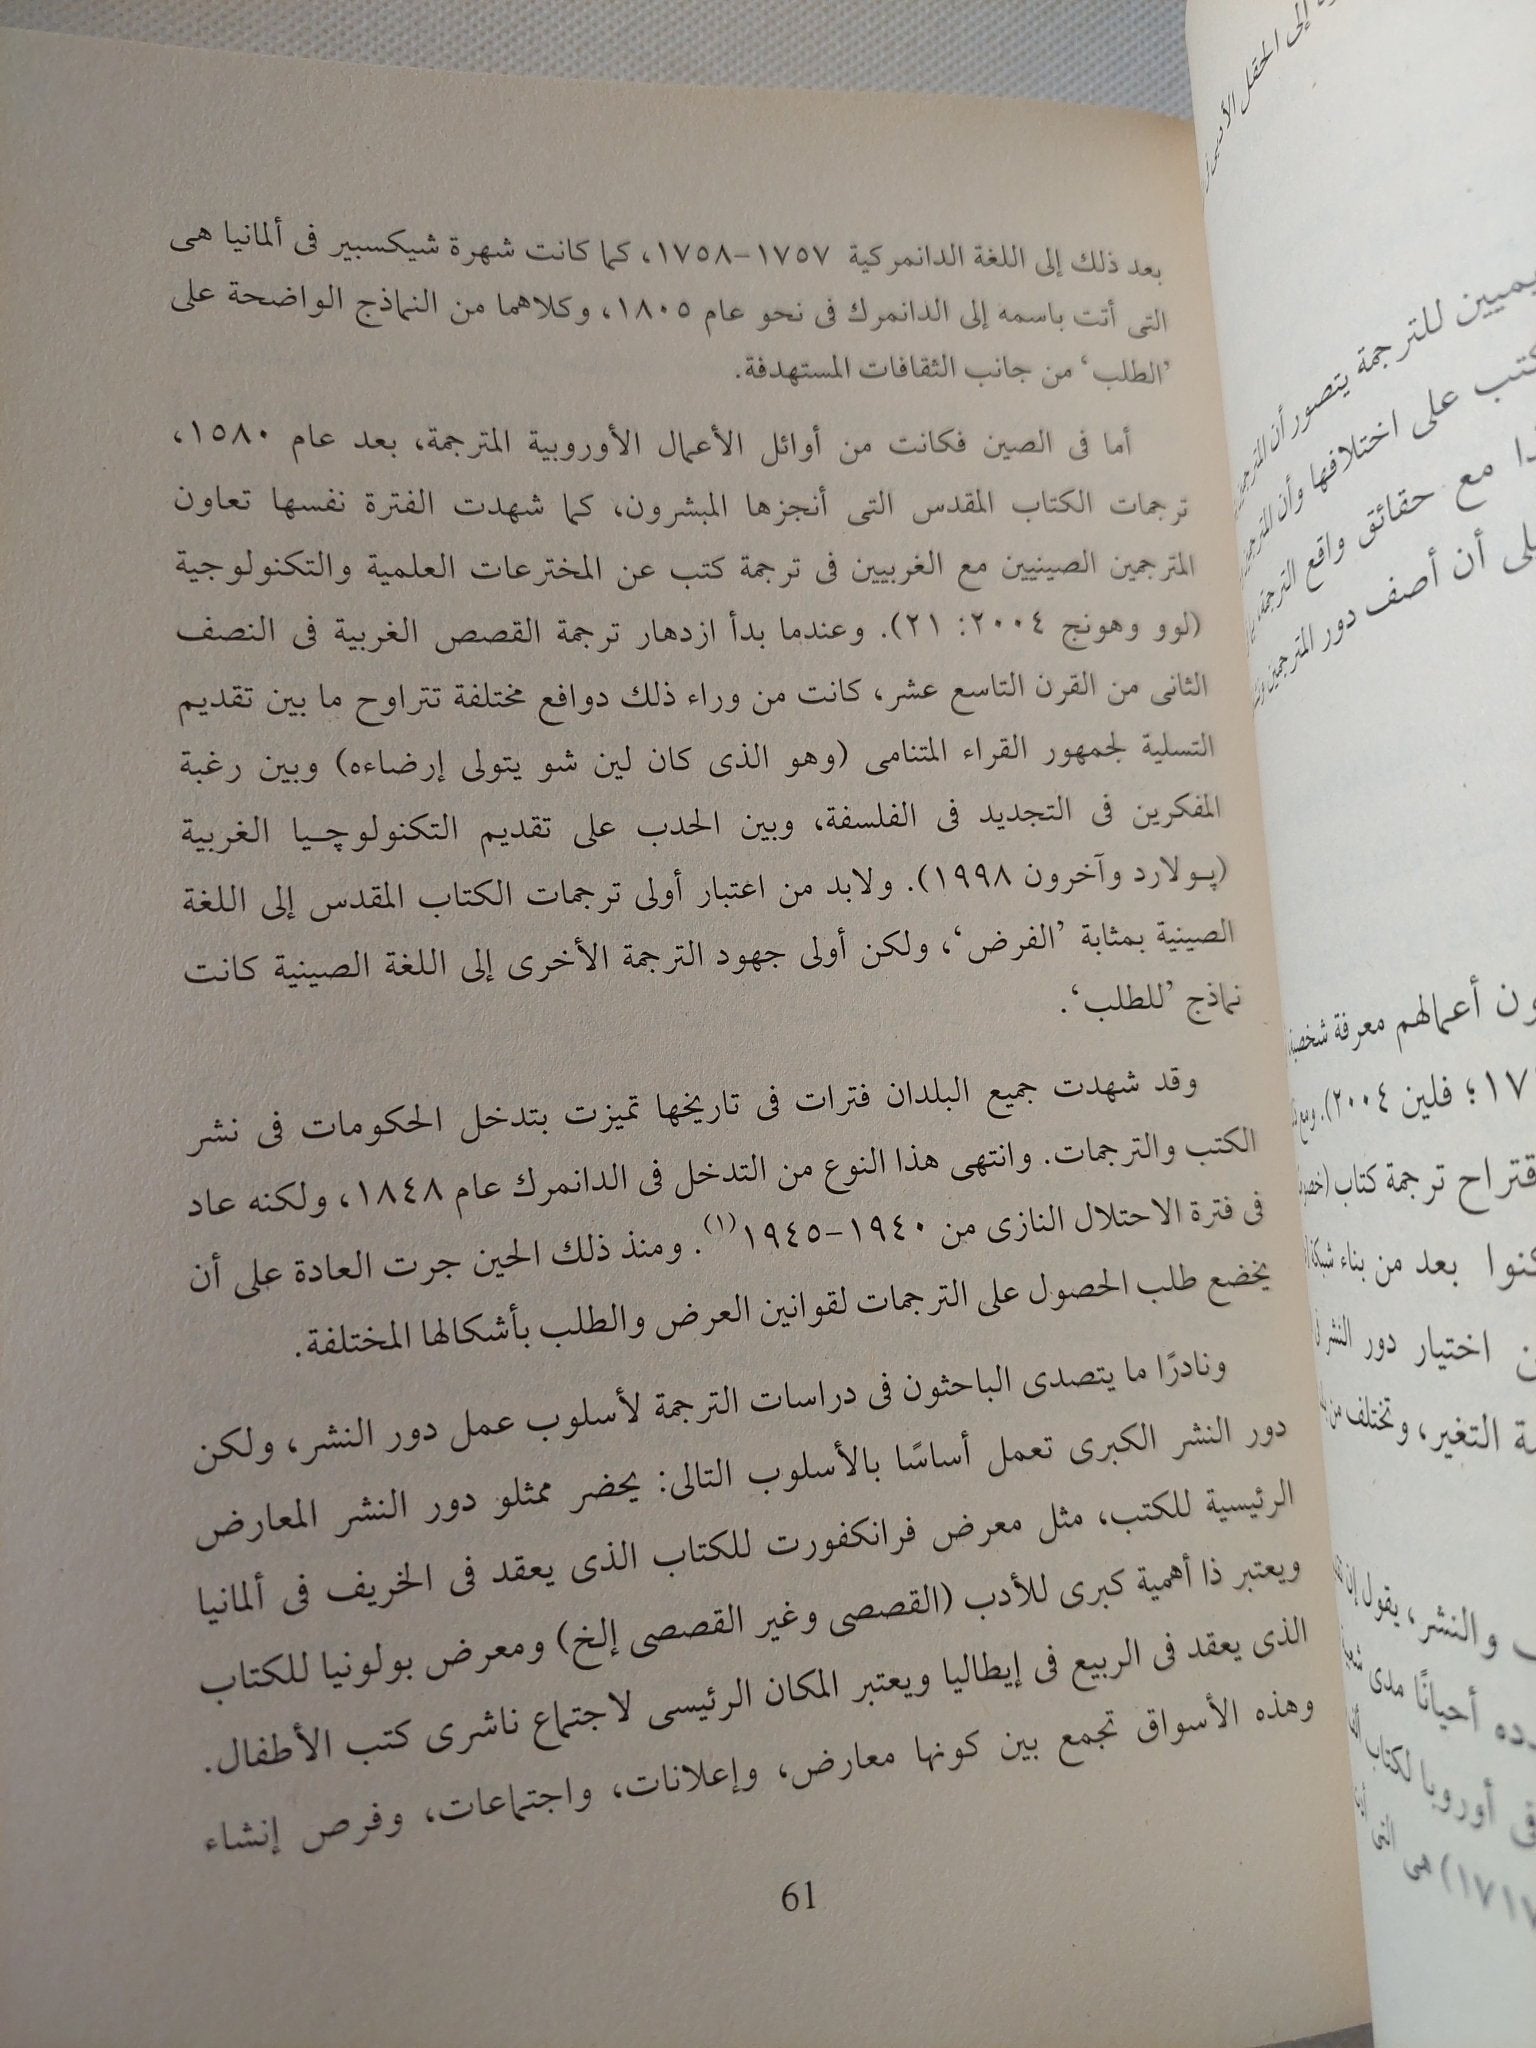 بعد ذلك إلى اللغة الدانمركية ١٧٥٧–١٧٥٨، كما كانت شهرة شيكسبير فى ألمانيا هى
التى أتت باسمه إلى الدانمرك فى نحو عام ١٨٠٥، وكلاهما من النماذج الواضحة على
’الطلب‘ من جانب الثقافات المستهدفة.
أما فى الصين فكانت من أوائل الأعمال الأوروبية المترجمة، بعد عام ١٥٨٠،
ترجمات الكتاب المقدس التى أنجزها المبشرون، كما شهدت الفترة نفسها تعاون
المترجمين الصينيين مع الغربيين فى ترجمة كتب عن المخترعات العلمية والتكنولوجية
(لوو وهونج ٢٠٠٤: ٢١). وعندما بدأ ازدهار ترجمة القصص الغربية فى النصف
الثانى من القرن التاسع عشر، كانت من وراء ذلك دوافع مختلفة تتراوح ما بين تقديم
التسلية لجمهور القراء المتنامى (وهو الذى كان لين شو يتولى إرضاءه) وبين رغبة
المفكرين فى التجديد فى الفلسفة، وبين الحدب على تقديم التكنولوچيا الغربية
(پولارد وآخرون ١٩٩٨). ولابد من اعتبار أولى ترجمات الكتاب المقدس إلى اللغة
الصينية بمثابة ’الفرض‘، ولكن أولى جهود الترجمة الأخرى إلى اللغة الصينية كانت
نماذج ’للطلب‘.
وقد شهدت جميع البلدان فترات فى تاريخها تميزت بتدخل الحكومات فى نشر
الكتب والترجمات. وانتهى هذا النوع من التدخل فى الدانمرك عام ١٨٤٨، ولكنه عاد
فى فترة الاحتلال النازى من ١٩٤٠–١٩٤٥(١). ومنذ ذلك الحين جرت العادة على أن
يخضع طلب الحصول على الترجمات لقوانين العرض والطلب بأشكالها المختلفة.
ونادرًا ما يتصدى الباحثون فى دراسات الترجمة لأسلوب عمل دور النشر، ولكن
دور النشر الكبرى تعمل أساسًا بالأسلوب التالى: يحضر ممثلو دور النشر المعارض
الرئيسية للكتب، مثل معرض فرانكفورت للكتاب الذى يعقد فى الخريف فى ألمانيا
ويعتبر ذا أهمية كبرى للأدب (القصصى وغير القصصى إلخ) ومعرض بولونيا للكتاب
الذى يعقد فى الربيع فى إيطاليا ويعتبر المكان الرئيسى لاجتماع ناشرى كتب الأطفال.
وهذه الأسواق تجمع بين كونها معارض، وإعلانات، واجتماعات، وفرص إنشاء
61
إلى الحقل
للترجمة يتصور أن
على اختلافها وأن
مع حقائق واقع الترجمة
أن أصف دور المترجمين
أعمالهم معرفة
؛ فلين ٢٠٠٤).
ترجمة كتاب
بعد من بناء شبكة
اختيار دور النشر
التغير، وتختلف من
والنشر، يقول إن
أحيانًا مدى
أوروبا لكتاب
هى التى